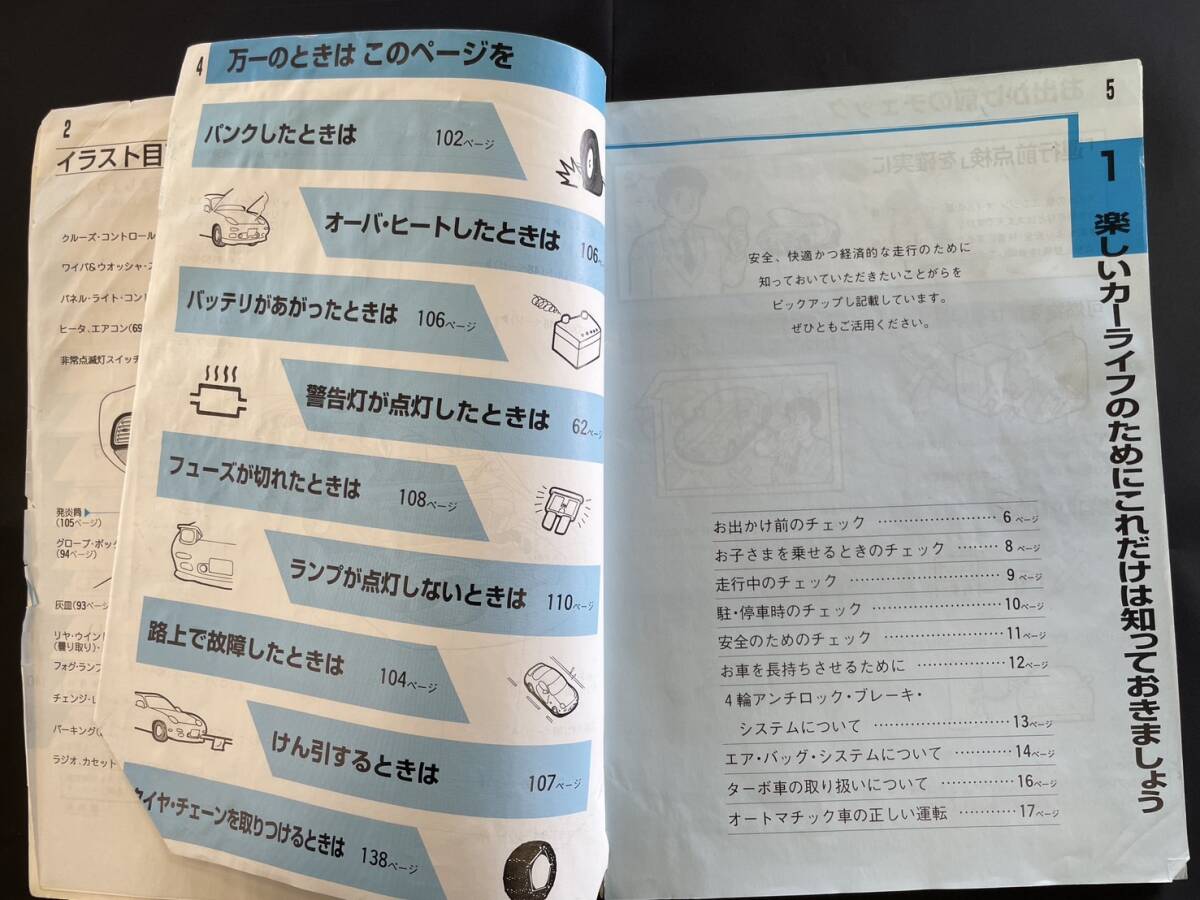 2
イラスト目
クルーズ・コントロール
ワイパ&ウオッシャ・ス
パネル・ライト・コント
ヒータ、エアコン(69
非常点滅灯スイッチ
発炎筒
(105ページ)
グローブ・ボック
(94ページ)
灰皿(93ページ
リヤ・ウインド
(曇り取り)・
フォグ・ランプ
チェンジ・レ
パーキング(
ラジオ、カセット
4
万一のときは このページを
パンクしたときは 102ページ
オーバ・ヒートしたときは 106ページ
バッテリがあがったときは 106ページ
警告灯が点灯したときは 62ページ
フューズが切れたときは 108ページ
ランプが点灯しないときは 110ページ
路上で故障したときは 104ページ
けん引するときは 107ページ
タイヤ・チェーンを取りつけるときは 138ページ
5
1 楽しいカーライフのためにこれだけは知っておきましょう
安全、快適かつ経済的な走行のために
知っておいていただきたいことがらを
ピックアップし記載しています。
ぜひともご活用ください。
お出かけ前のチェック ……………………6ページ
お子さまを乗せるときのチェック ………8ページ
走行中のチェック …………………………9ページ
駐・停車時のチェック ……………………10ページ
安全のためのチェック ……………………11ページ
お車を長持ちさせるために ………………12ページ
4輪アンチロック・ブレーキ・
システムについて …………………………13ページ
エア・バッグ・システムについて …………14ページ
ターボ車の取り扱いについて ……………16ページ
オートマチック車の正しい運転 …………17ページ